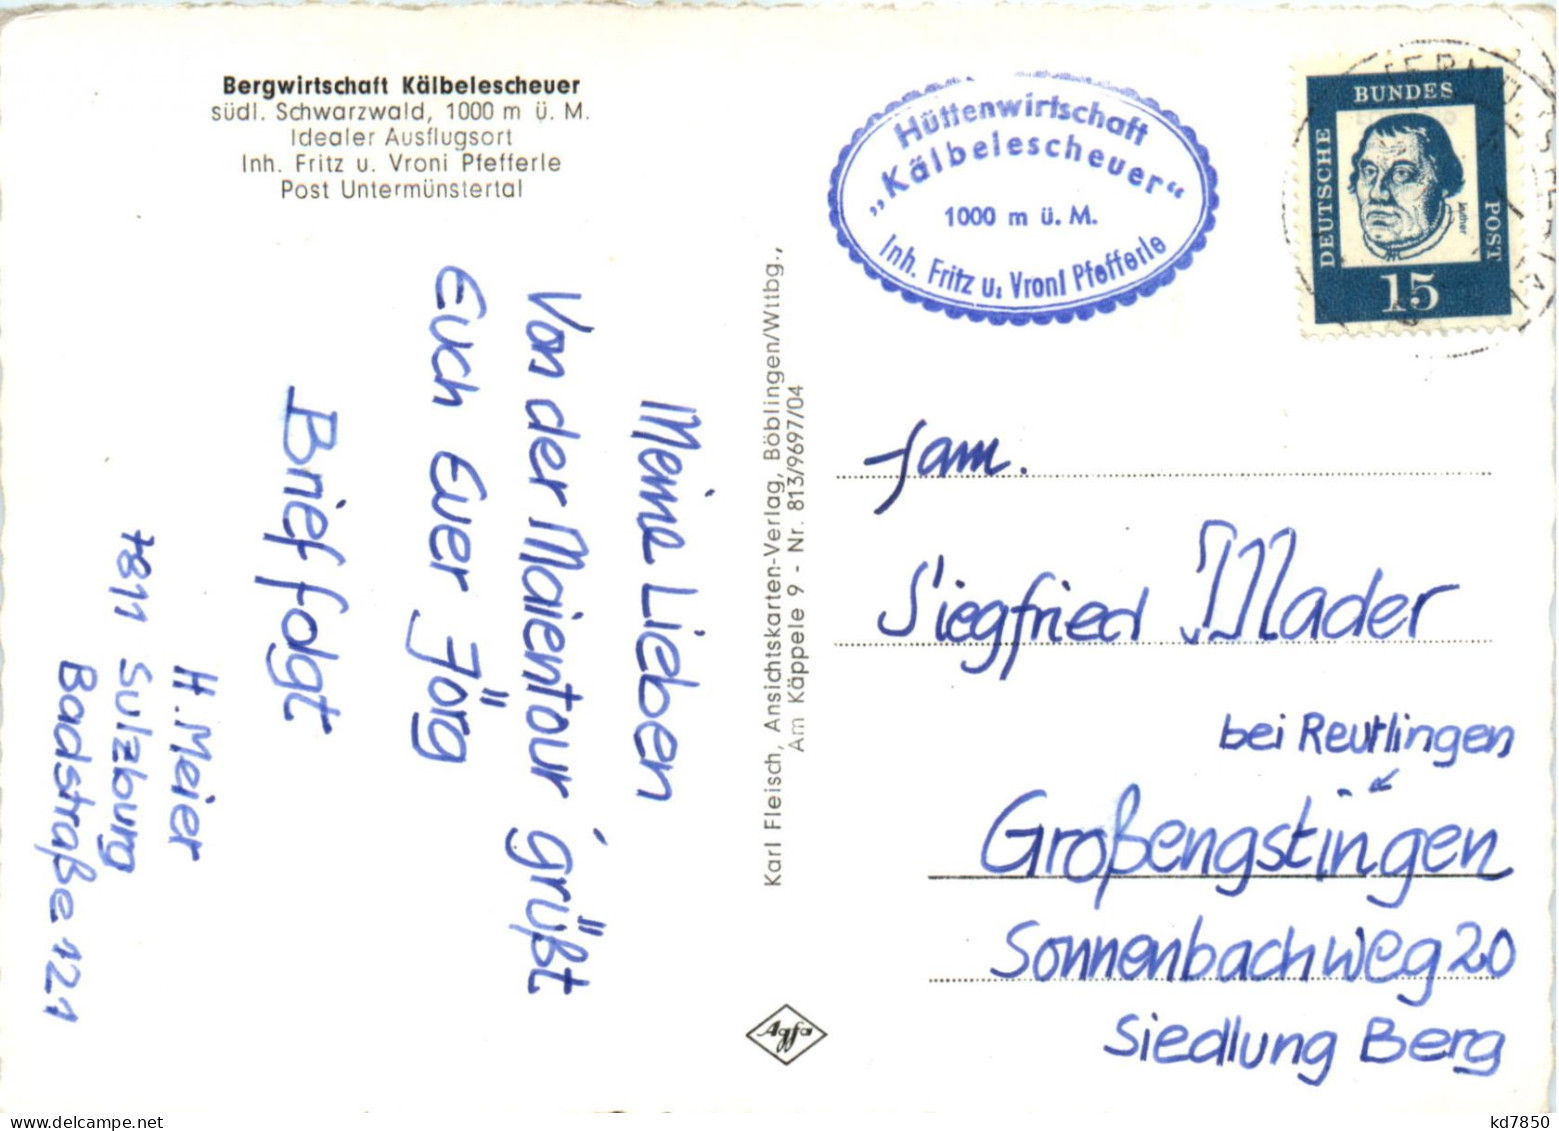 Bergwirtschaft Kälbelescheuer
südl. Schwarzwald, 1000 m ü. M.
Idealer Ausflugsort
Inh. Fritz u. Vroni Pfefferle
Post Untermünstertal
Meine Lieben
Von der Maientour grüßt
Euch Euer Jörg
Brief folgt
H. Meier
7811 Sulzburg
Badstraße 121
Karl Fleisch, Ansichtskarten-Verlag, Böblingen/Wttbg.,
Am Käppele 9 - Nr. 813/9697/04
Agfa
Hüttenwirtschaft
„Kälbelescheuer“
1000 m ü. M.
Inh. Fritz u. Vroni Pfefferle
DEUTSCHE BUNDES POST
Luther
15
Fam.
Siegfried Mader
bei Reutlingen
Großengstingen
Sonnenbachweg 20
Siedlung Berg
kd7850